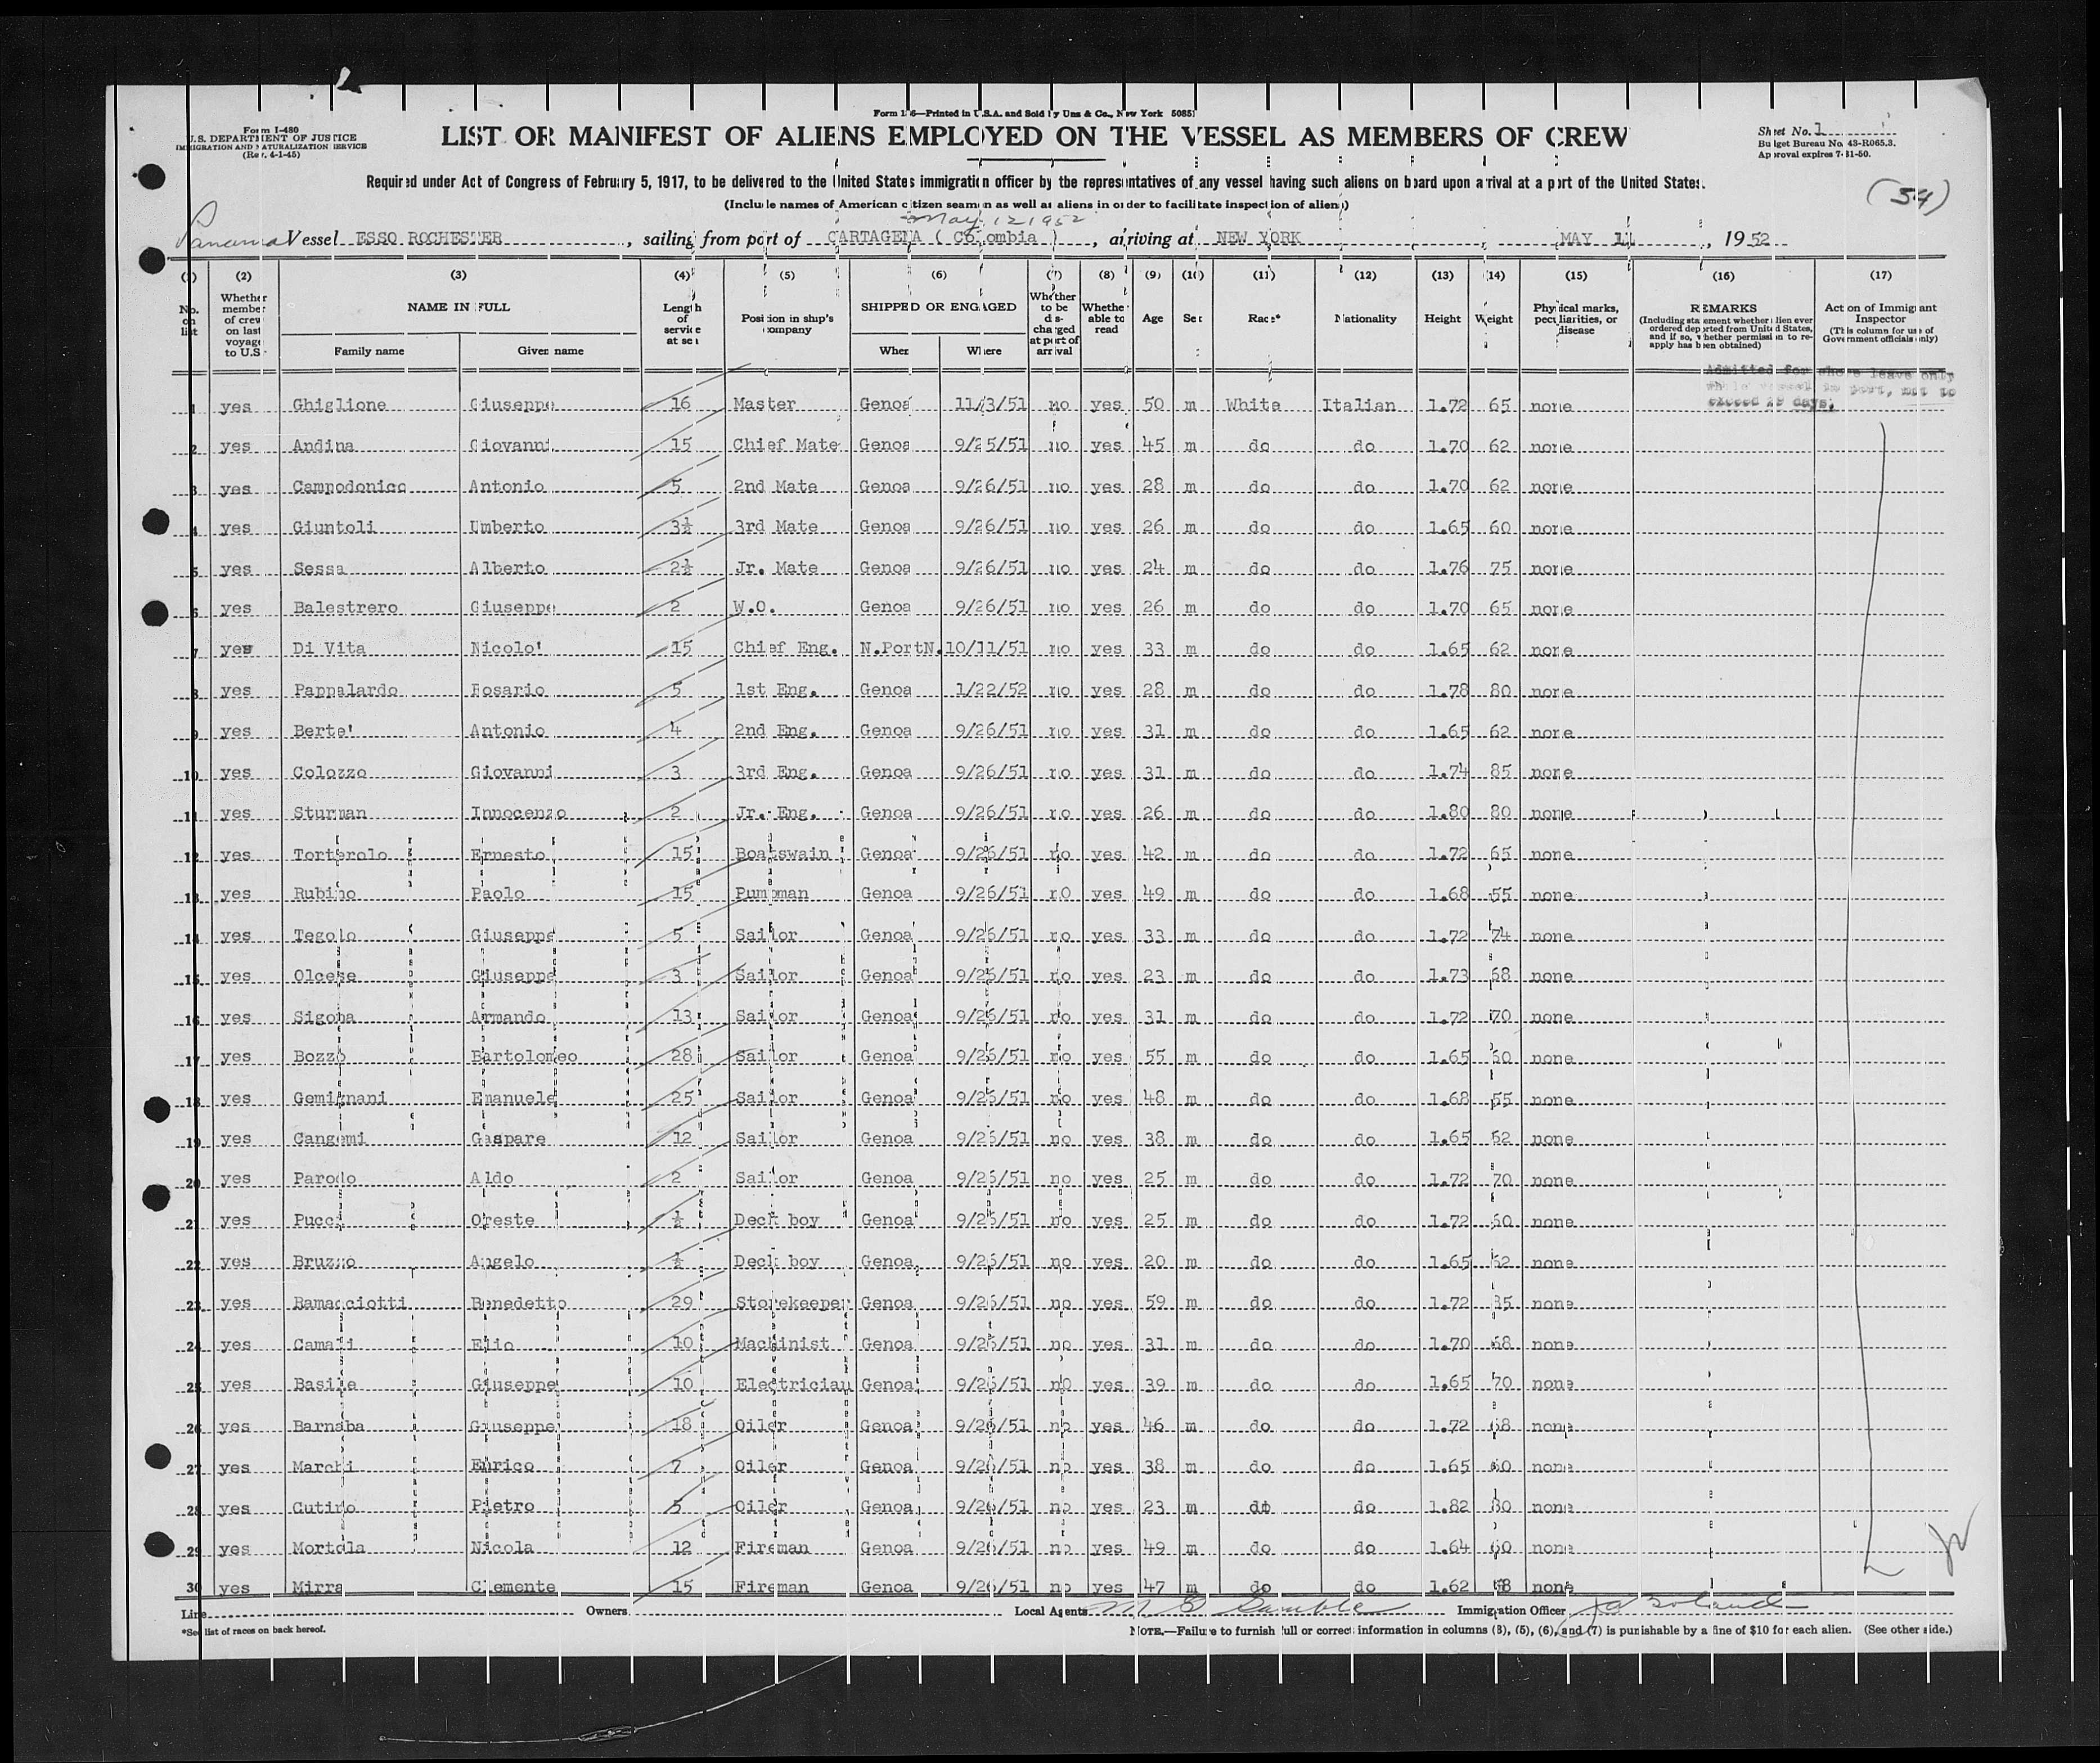 Form 1-6—Printed in U.S.A. and Sold by Unz & Co., New York 50851
Form I-480
U.S. DEPARTMENT OF JUSTICE
IMMIGRATION AND NATURALIZATION SERVICE
(Rev. 4-1-45)
LIST OR MANIFEST OF ALIENS EMPLOYED ON THE VESSEL AS MEMBERS OF CREW
Sheet No. 1
Budget Bureau No. 43-R065.3.
Approval expires 7-31-50.
Required under Act of Congress of February 5, 1917, to be delivered to the United States immigration officer by the representatives of any vessel having such aliens on board upon arrival at a port of the United States.
(Include names of American citizen seamen as well as aliens in order to facilitate inspection of aliens)
(54)
May 12 1952
Panama Vessel ESSO ROCHESTER, sailing from port of CARTAGENA ( Colombia ), arriving at NEW YORK, MAY 11, 1952
(1) (2) (3) (4) (5) (6) (7) (8) (9) (10) (11) (12) (13) (14) (15) (16) (17)
No. on list
Whether member of crew on last voyage to U.S.
NAME IN FULL
Family name
Given name
Length of service at sea
Position in ship's company
SHIPPED OR ENGAGED
When
Where
Whether to be discharged at port of arrival
Whether able to read
Age
Sex
Race*
Nationality
Height
Weight
Physical marks, peculiarities, or disease
REMARKS
(Including statement whether alien ever ordered deported from United States, and if so, whether permission to reapply has been obtained)
Action of Immigrant Inspector
(This column for use of Government officials only)
Admitted for shore leave only
while vessel in port, not to
exceed 29 days.
1 yes Ghiglione Giuseppe 16 Master Genoa 11/3/51 no yes 50 m White Italian 1.72 65 none
2 yes Andina Giovanni 15 Chief Mate Genoa 9/25/51 no yes 45 m do do 1.70 62 none
3 yes Campodonico Antonio 5 2nd Mate Genoa 9/26/51 no yes 28 m do do 1.70 62 none
4 yes Giuntoli Umberto 3½ 3rd Mate Genoa 9/26/51 no yes 26 m do do 1.65 60 none
5 yes Sessa Alberto 2½ Jr. Mate Genoa 9/26/51 no yes 24 m do do 1.76 75 none
6 yes Balestrero Giuseppe 2 W.O. Genoa 9/26/51 no yes 26 m do do 1.70 65 none
7 yes Di Vita Nicolo' 15 Chief Eng. N.PortN. 10/11/51 no yes 33 m do do 1.65 62 none
8 yes Pappalardo Rosario 5 1st Eng. Genoa 1/22/52 no yes 28 m do do 1.78 80 none
9 yes Berte' Antonio 4 2nd Eng. Genoa 9/26/51 no yes 31 m do do 1.65 62 none
10 yes Colozzo Giovanni 3 3rd Eng. Genoa 9/26/51 no yes 31 m do do 1.74 85 none
11 yes Sturman Innocenzo 2 Jr. Eng. Genoa 9/26/51 no yes 26 m do do 1.80 80 none
12 yes Torterolo Ernesto 15 Boatswain Genoa 9/26/51 no yes 42 m do do 1.72 65 none
13 yes Rubino Paolo 15 Pumpman Genoa 9/26/51 nO yes 49 m do do 1.68 55 none
14 yes Tegolo Giuseppe 5 Sailor Genoa 9/26/51 no yes 33 m do do 1.72 74 none
15 yes Olcese Giuseppe 3 Sailor Genoa 9/26/51 no yes 23 m do do 1.73 68 none
16 yes Sigona Armando 13 Sailor Genoa 9/26/51 no yes 31 m do do 1.72 70 none
17 yes Bozzo Bartolomeo 28 Sailor Genoa 9/26/51 no yes 55 m do do 1.65 60 none
18 yes Gemignani Emanuele 25 Sailor Genoa 9/26/51 no yes 48 m do do 1.68 55 none
19 yes Cangemi Gaspare 12 Sailor Genoa 9/26/51 no yes 38 m do do 1.65 62 none
20 yes Parodo Aldo 2 Sailor Genoa 9/26/51 no yes 25 m do do 1.72 70 none
21 yes Pucci Oreste ½ Deck boy Genoa 9/26/51 no yes 25 m do do 1.72 60 none
22 yes Bruzzo Angelo ½ Deck boy Genoa 9/26/51 no yes 20 m do do 1.65 62 none
23 yes Ramacciotti Benedetto 29 Storekeeper Genoa 9/26/51 no yes 59 m do do 1.72 85 none
24 yes Camali Elio 10 Machinist Genoa 9/26/51 no yes 31 m do do 1.70 68 none
25 yes Basile Giuseppe 10 Electrician Genoa 9/26/51 nO yes 39 m do do 1.65 70 none
26 yes Barnaba Giuseppe 18 Oiler Genoa 9/26/51 no yes 46 m do do 1.72 68 none
27 yes Marchi Enrico 7 Oiler Genoa 9/26/51 no yes 38 m do do 1.65 60 none
28 yes Cutino Pietro 5 Oiler Genoa 9/26/51 no yes 23 m do do 1.82 80 none
29 yes Mortola Nicola 12 Fireman Genoa 9/26/51 no yes 49 m do do 1.64 60 none
30 yes Mirra Clemente 15 Fireman Genoa 9/26/51 no yes 47 m do do 1.62 58 none
Line Owners Local Agents M B Gamble Immigration Officer
*See list of races on back hereof.
NOTE.—Failure to furnish full or correct information in columns (3), (5), (6), and (7) is punishable by a fine of $10 for each alien. (See other side.)